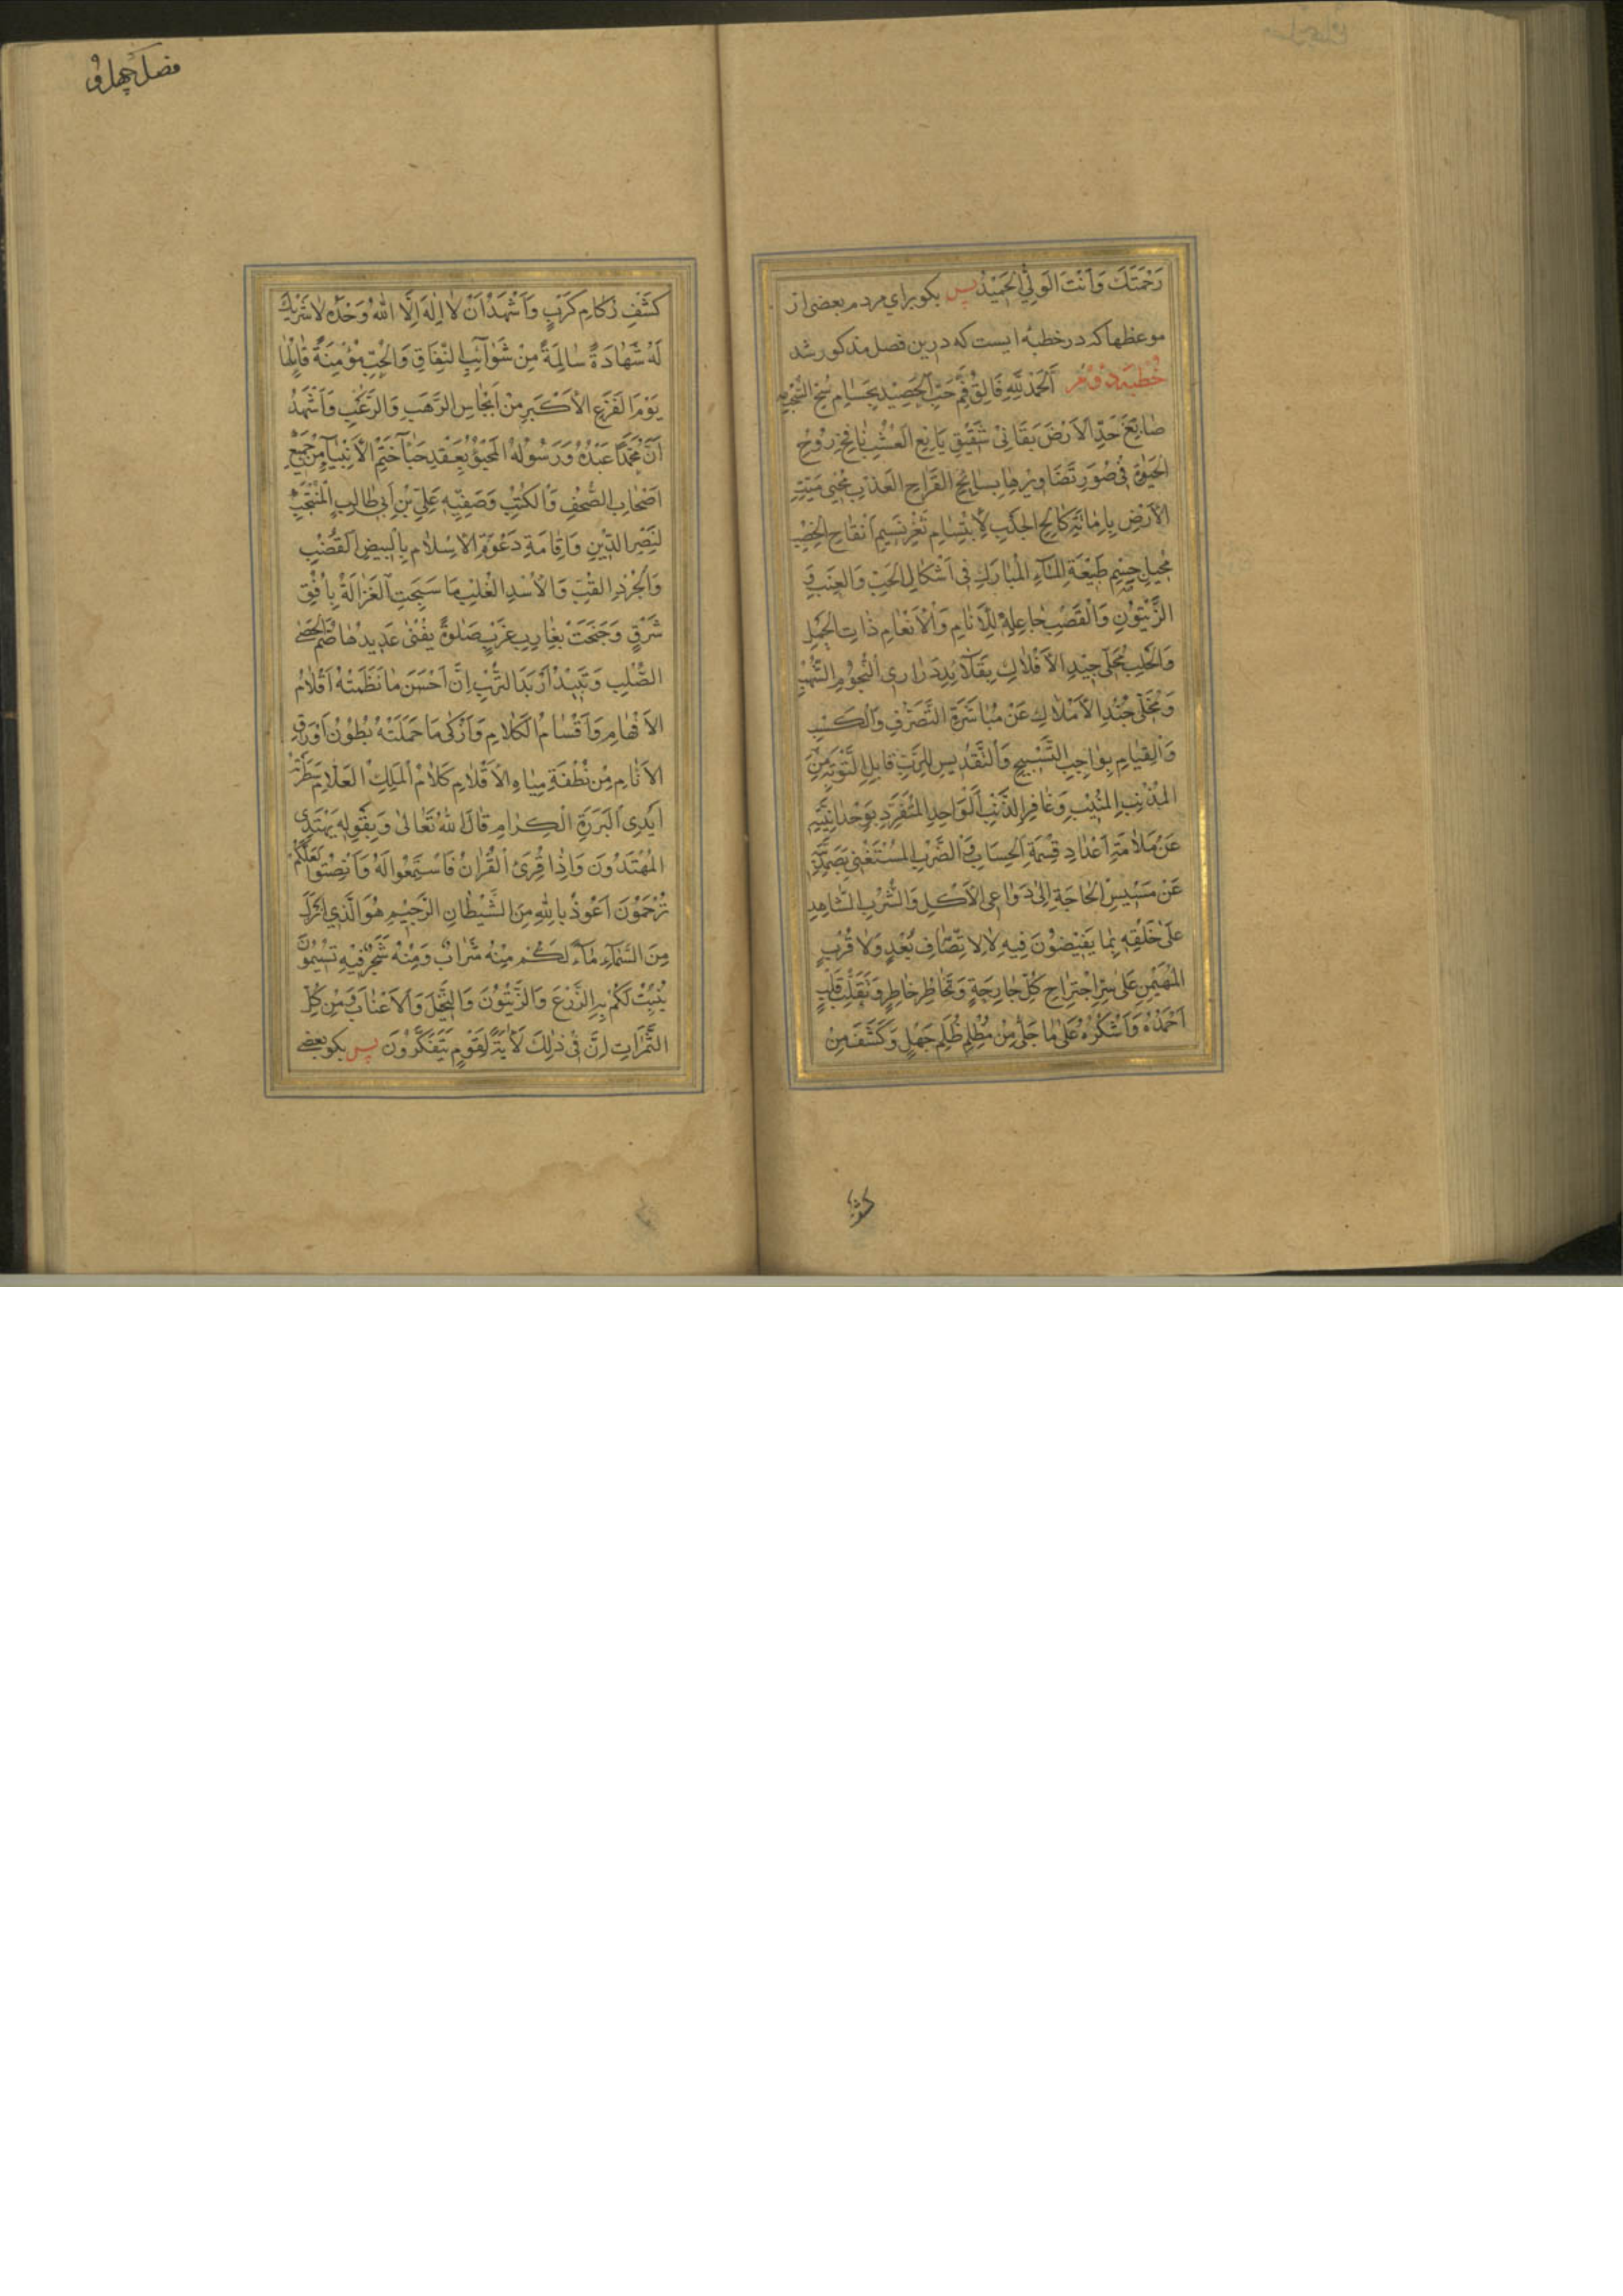 رَحْمَتَكَ وَاَنْتَ الْوَلِيُّ الْحَمِيْدُ پس بکو برای مردم بعضی از
موعظها که در خطبهٔ ایست که درین فصل مذکور شد
خُطبَه دوّم اَلْحَمْدُ لِلّٰهِ فَالِقِ حَبِّ الْحَصِيْدِ بِحُسَامِ
خَدِّ الْاَرْضِ بِقَانِیْ شَقِيْقِ يَانِعِ الْعُشْبِ نَافِخِ رُوْحِ
الْحَيٰوةِ فِیْ صُوَرِ تَصَاوِيْرِهَا بِسَائِحِ الْقَرَاحِ الْعَذْبِ مُحْيِیْ مَيِّتِ
الْاَرْضِ بِاِمَاتَةِ كَالِحِ الْجَدْبِ لِابْتِسَامِ ثَغْرِ نَسِيْمِ
مُحِيْلِ جِسْمِ طَبِيْعَةِ الْمَاءِ الْمُبَارَكِ فِیْ اَشْكَالِ الْحَبِّ وَالْعِنَبِ وَ
الزَّيْتُوْنِ وَالْقَصَبِ جَاعِلِهٖ لِلْاَنَامِ وَالْاَنْعَامِ ذَاتِ الْحَمْلِ
وَالْحَلَبِ مُحَلِّیْ جِيْدِ الْاَفْلَاكِ بِقَلَائِدِ دَرَارِی النُّجُوْمِ الشُّهْبِ
وَمُخَلِّیْ جُنْدِ الْاَمْلَاكِ عَنْ مُبَاشَرَةِ التَّصَرُّفِ وَالْكَسْبِ
وَالْقِيَامِ بِوَاجِبِ التَّسْبِيْحِ وَالتَّقْدِيْسِ لِلرَّبِّ قَابِلِ التَّوْبَةِ مِنَ
الْمُذْنِبِ الْمُنِيْبِ وَغَافِرِ الذَّنْبِ الْوَاحِدِ الْمُتَفَرِّدِ بِوَحْدَانِيَّتِهٖ
عَنْ مُلَامَّةِ اَعْدَادِ قِسْمَةِ الْحِسَابِ وَالضَّرْبِ الْمُسْتَغْنِیْ بِصَمَدِيَّتِهٖ
عَنْ مَسِيْسِ الْحَاجَةِ اِلٰی دَوَاعِی الْاَكْلِ وَالشُّرْبِ الشَّاهِدِ
عَلٰی خَلْقِهٖ بِمَا يُفِيْضُوْنَ فِيْهِ لَا لِاتِّصَافِ بُعْدٍ وَلَا قُرْبٍ
الْمُهَيْمِنِ عَلٰی سِرِّ اجْتِرَاحِ كُلِّ جَارِحَةٍ وَخَاطِرٍ وَتَقَلُّبِ قَلْبٍ
اَحْمَدُهٗ وَاَشْكُرُهٗ عَلٰی مَا جَلٰی مِنْ مُظْلِمِ ظُلَمِ جَهْلٍ وَكَشَفَ مِنْ
کشف
فصل چهل و
كَشْفِ رُكَامِ كَرْبٍ وَاَشْهَدُ اَنْ لَا اِلٰهَ اِلَّا اللّٰهُ وَحْدَهٗ لَا شَرِيْكَ
لَهٗ شَهَادَةً سَالِمَةً مِنْ شَوَائِبِ النِّفَاقِ وَالْخِبِّ مُؤْمِنَةً قَائِلَهَا
يَوْمَ الْفَزَعِ الْاَكْبَرِ مِنْ الرَّهَبِ وَالرُّعْبِ وَاَشْهَدُ
اَنَّ مُحَمَّدًا عَبْدُهٗ وَرَسُوْلُهُ الْمَحْبُوُّ بِعَقْدِ حِبَاءِ خَتْمِ الْاَنْبِيَاءِ مِنْ جَمِيْعِ
اَصْحَابِ الصُّحُفِ وَالْكُتُبِ وَصَفِيِّهٖ عَلِيِّ بْنِ اَبِیْ طَالِبٍ الْمُنْتَجَبِ
لِنَصْرِ الدِّيْنِ وَاِقَامَةِ دَعْوَةِ الْاِسْلَامِ بِالْبِيْضِ الْقُضُبِ
وَالْجُرْدِ الْقُبِّ وَالْاُسْدِ الْغُلْبِ مَا سَبَحَتِ الْغَزَالَةُ بِاُفُقِ
شَرْقٍ وَجَنَحَتْ بِغَارِبِ غَرْبٍ صَلٰوةً يَفْنٰی عَدِيْدُهَا صُمَّ الْحَصَی
الصُّلْبِ وَتَبِيْدُ التُّرْبِ اِنَّ اَحْسَنَ مَا نَظَمَتْهُ اَقْلَامُ
الْاَفْهَامِ وَاَقْسَامُ الْكَلَامِ وَاَزْكٰی مَا حَمَلَتْهُ بُطُوْنُ اَوْرَاقِ
الْاَنَامِ مِنْ نُطْفَةِ مِيَاهِ الْاَقْلَامِ كَلَامُ الْمَلِكِ الْعَلَّامِ سَطَّرَتْهُ
اَيْدِی الْبَرَرَةِ الْكِرَامِ قَالَ اللّٰهُ تَعَالٰی وَبِقَوْلِهٖ يَهْتَدِی
الْمُهْتَدُوْنَ وَاِذَا قُرِئَ الْقُرْاٰنُ فَاسْتَمِعُوْا لَهٗ وَاَنْصِتُوْا لَعَلَّكُمْ
تُرْحَمُوْنَ اَعُوْذُ بِاللّٰهِ مِنَ الشَّيْطَانِ الرَّجِيْمِ هُوَ الَّذِیْ اَنْزَلَ
مِنَ السَّمَاءِ مَاءً لَكُمْ مِنْهُ شَرَابٌ وَمِنْهُ شَجَرٌ فِيْهِ تُسِيْمُوْنَ
يُنْبِتُ لَكُمْ بِهِ الزَّرْعَ وَالزَّيْتُوْنَ وَالنَّخِيْلَ وَالْاَعْنَابَ وَمِنْ كُلِّ
الثَّمَرَاتِ اِنَّ فِیْ ذٰلِكَ لَاٰيَةً لِقَوْمٍ يَتَفَكَّرُوْنَ پس بکو بعضی